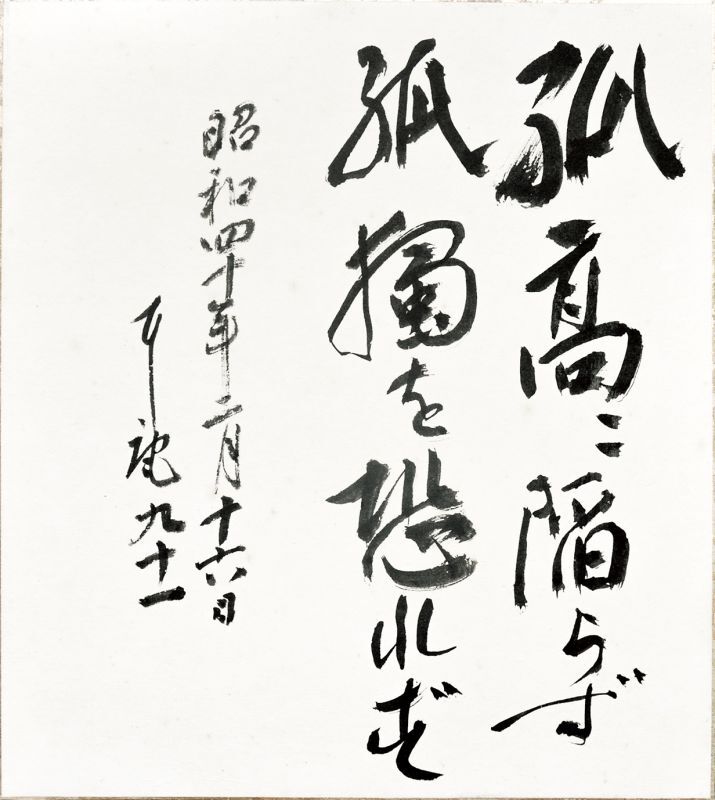 孤高ニ陥らず
孤獨を恐れず
昭和四十年二月十六日
九十一